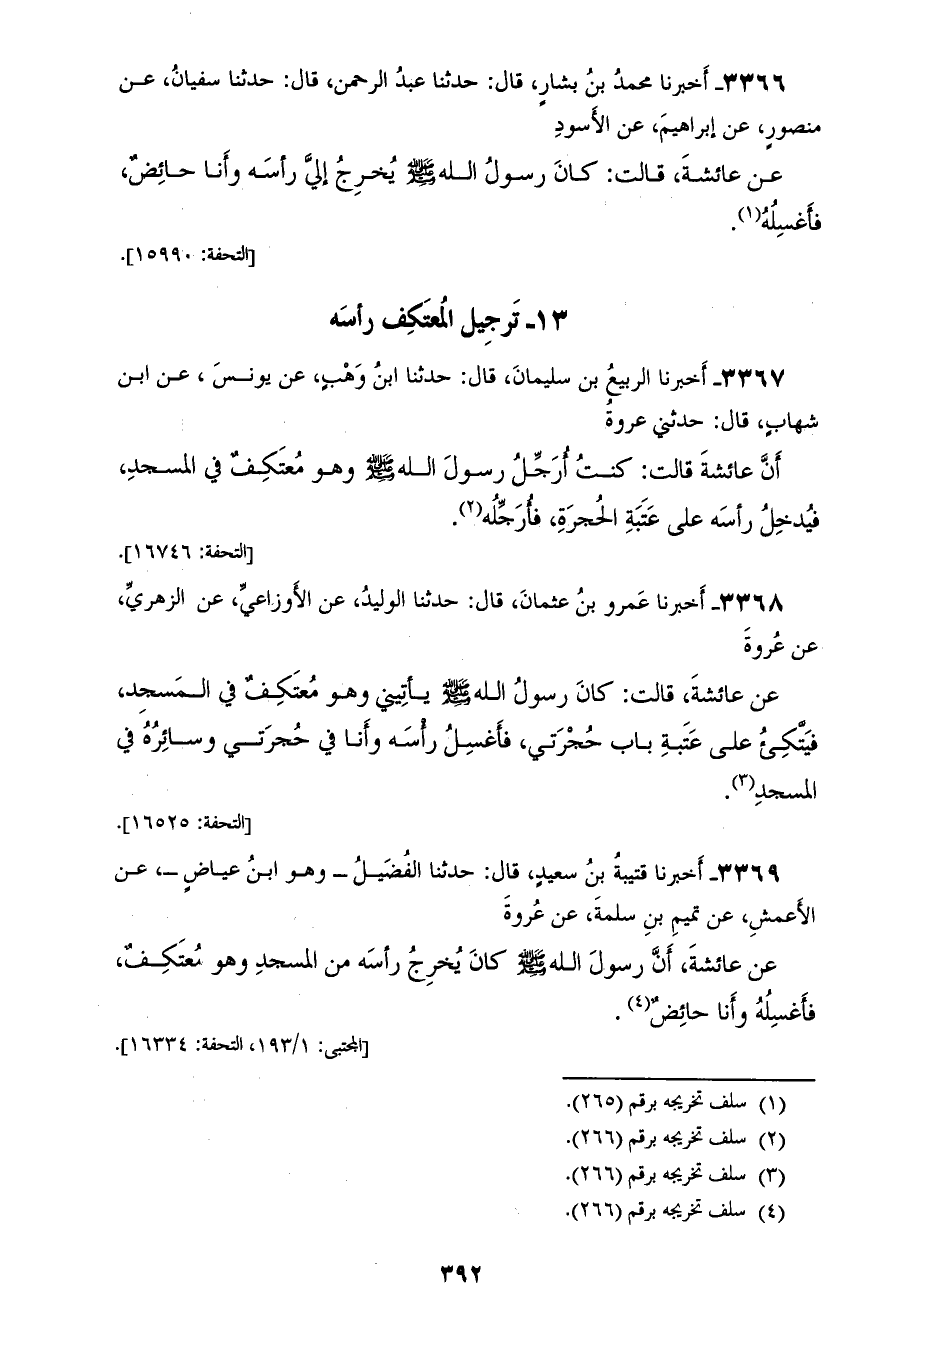 ٣٣٦٦ـ أَخبرنا محمدُ بنُ بشارٍ، قال: حدثنا عبدُ الرحمن، قال: حدثنا سفيانُ، عـن
منصورٍ، عن إبراهيمَ، عن الأَسودِ
عـن عائشـةَ، قـالت: كـانَ رسـولُ اللـه ﷺ يُخـرِجُ إليَّ رأسَـه وأَنـا حـائِضٌ،
فأَغسِلُهُ(١).
[التحفة: ١٥٩٩٠].
١٣ـ تَرجِيل المُعتَكِف رأسَه
٣٣٦٧ـ أَخبرنا الربيعُ بن سليمانَ، قال: حدثنا ابنُ وَهْبٍ، عن يونـسَ ، عـن ابـن
شهابٍ، قال: حدثني عروةُ
أَنَّ عائشةَ قالت: كنـتُ أُرَجِّـلُ رسـولَ اللـه ﷺ وهـو مُعتَكِـفٌ في المسـجدِ،
فيُدخِلُ رأسَه على عَتَبَةِ الحُجرَةِ، فأُرَجِّلُه(٢).
[التحفة: ١٦٧٤٦].
٣٣٦٨ـ أَخبرنا عَمرو بنُ عثمانَ، قال: حدثنا الوليدُ، عن الأَوزاعيِّ، عن الزهريِّ،
عن عُروةَ
عن عائشةَ، قالت: كانَ رسولُ اللـه ﷺ يـأتِيني وهـو مُعتَكِـفٌ في الـمَسـجِدِ،
فيَتَّكِئُ علـى عَتَبـةِ بـاب حُجْرَتي، فأَغسِـلُ رأْسَـه وأَنـا في حُجرَتـي وسـائِرُهُ في
المسجدِ(٣).
[التحفة: ١٦٥٢٥].
٣٣٦٩ـ أَخبرنا قتيبةُ بنُ سعيدٍ، قال: حدثنا الفُضَيـلُ ـ وهـو ابـنُ عيـاضٍ ـ، عـن
الأَعمشِ، عن تميمِ بنِ سلمةَ، عن عُروةَ
عن عائشةَ، أَنَّ رسولَ اللـه ﷺ كانَ يُخرِجُ رأسَه من المسجدِ وهو مُعتَكِـفٌ،
فأَغسِلُهُ وأَنا حائِضٌ(٤) .
[المجتبى: ١٩٣/١، التحفة: ١٦٣٣٤].
(١) سلف تخريجه برقم (٢٦٥).
(٢) سلف تخريجه برقم (٢٦٦).
(٣) سلف تخريجه برقم (٢٦٦).
(٤) سلف تخريجه برقم (٢٦٦).
٣٩٢